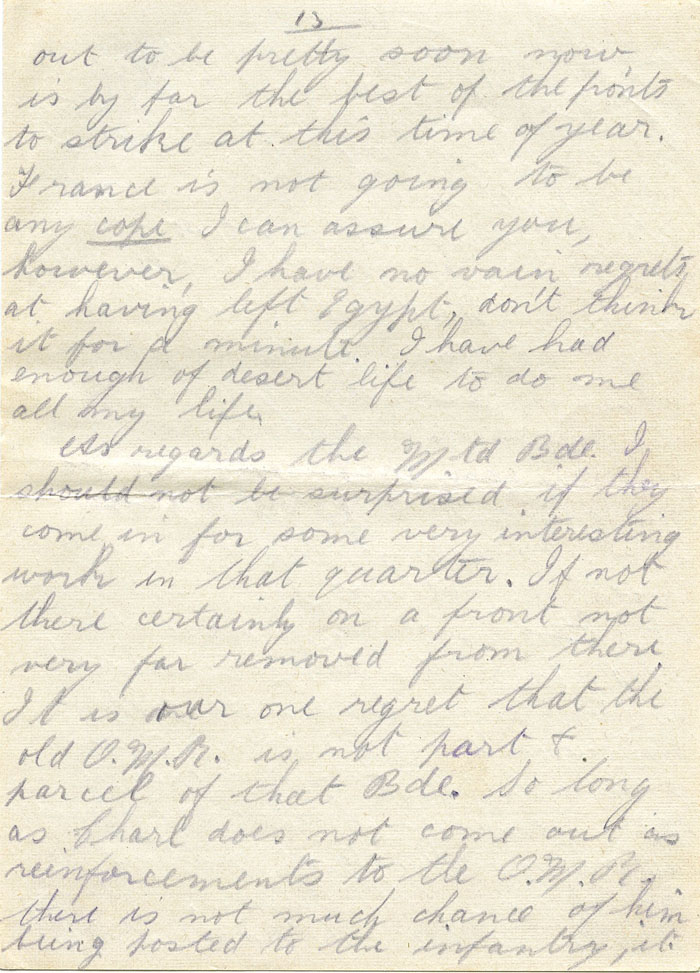 13
out to be pretty soon now,
is by far the best of the fronts
to strike at this time of year.
France is not going to be
any cope I can assure you,
however, I have no vain regrets
at having left Egypt, don't think
it for a minute. I have had
enough of desert life to do me
all my life.
As regards the Mtd Bde. I
should not be surprised if they
come in for some very interesting
work in that quarter. If not
there certainly on a front not
very far removed from there.
It is our one regret that the
old O.M.R. is not part &
parcel of that Bde. So long
as Charl does not come out as
reinforcements to the O.M.R.
there is not much chance of him
being posted to the infantry, it